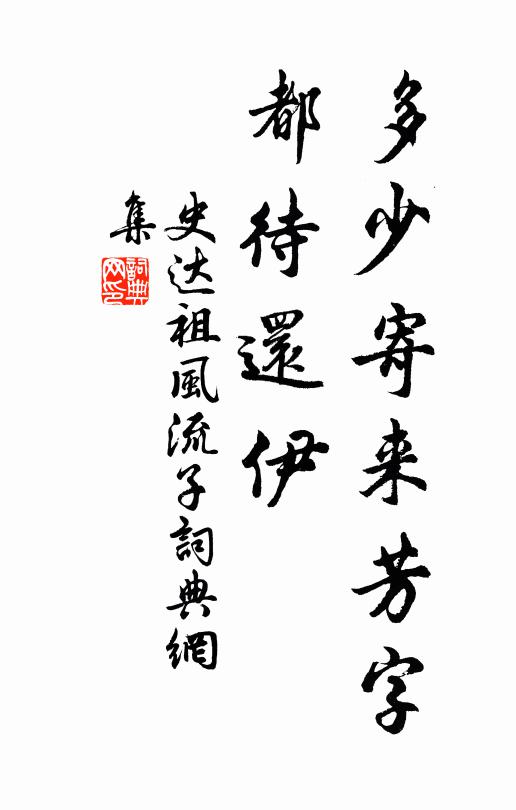 多少寄来芳字
都待還伊
史达祖風流子詞典網
集
詞典
网印